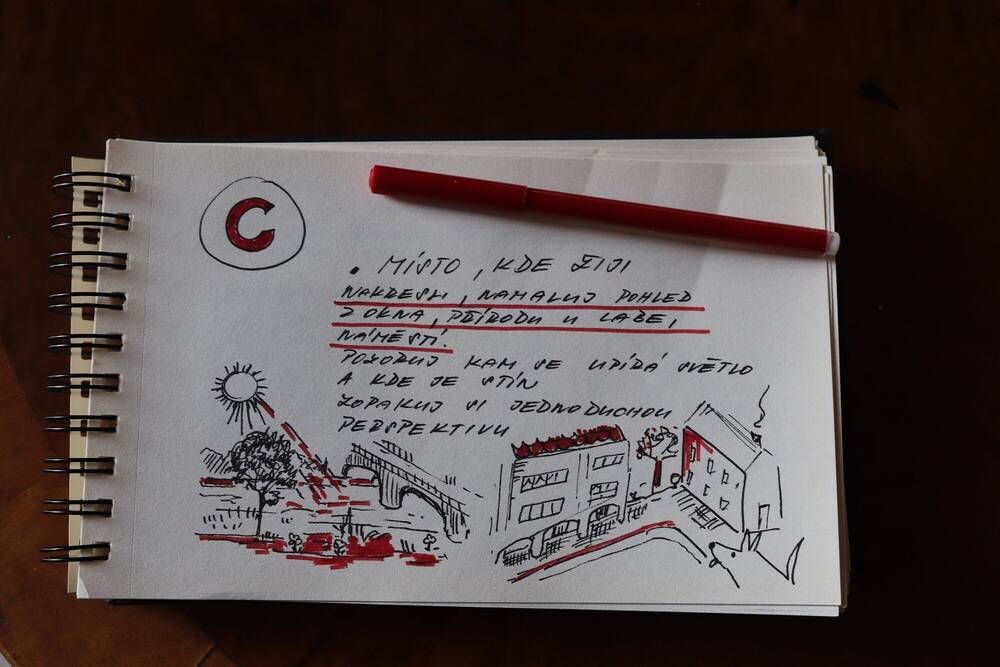 C
• MÍSTO, KDE ŽIJI
NAKRESLI, NAMALUJ POHLED
Z OKNA, PŘÍRODU U LABE,
NÁMĚSTÍ.
POZORUJ KAM SE UPÍRÁ SVĚTLO
A KDE JE STÍN
ZOPAKUJ SI JEDNODUCHOU
PERSPEKTIVU